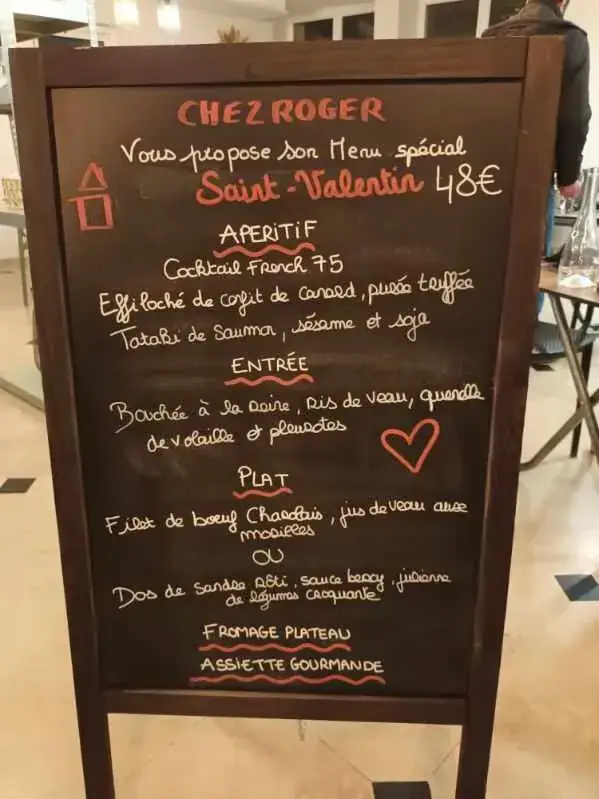 CHEZ ROGER
Vous propose son Menu spécial
Saint-Valentin 48€
APERITIF
Cocktail French 75
Effiloché de confit de Canard, purée truffée
Tataki de Saumon, sésame et soja
ENTRÉE
Bouchée à la Reine, Ris de veau, quenelle
de volaille et pleurotes
PLAT
Filet de boeuf Charolais, jus de veau aux
morilles
OU
Dos de sandre rôti, sauce bercy, julienne
de légumes croquante
FROMAGE PLATEAU
ASSIETTE GOURMANDE